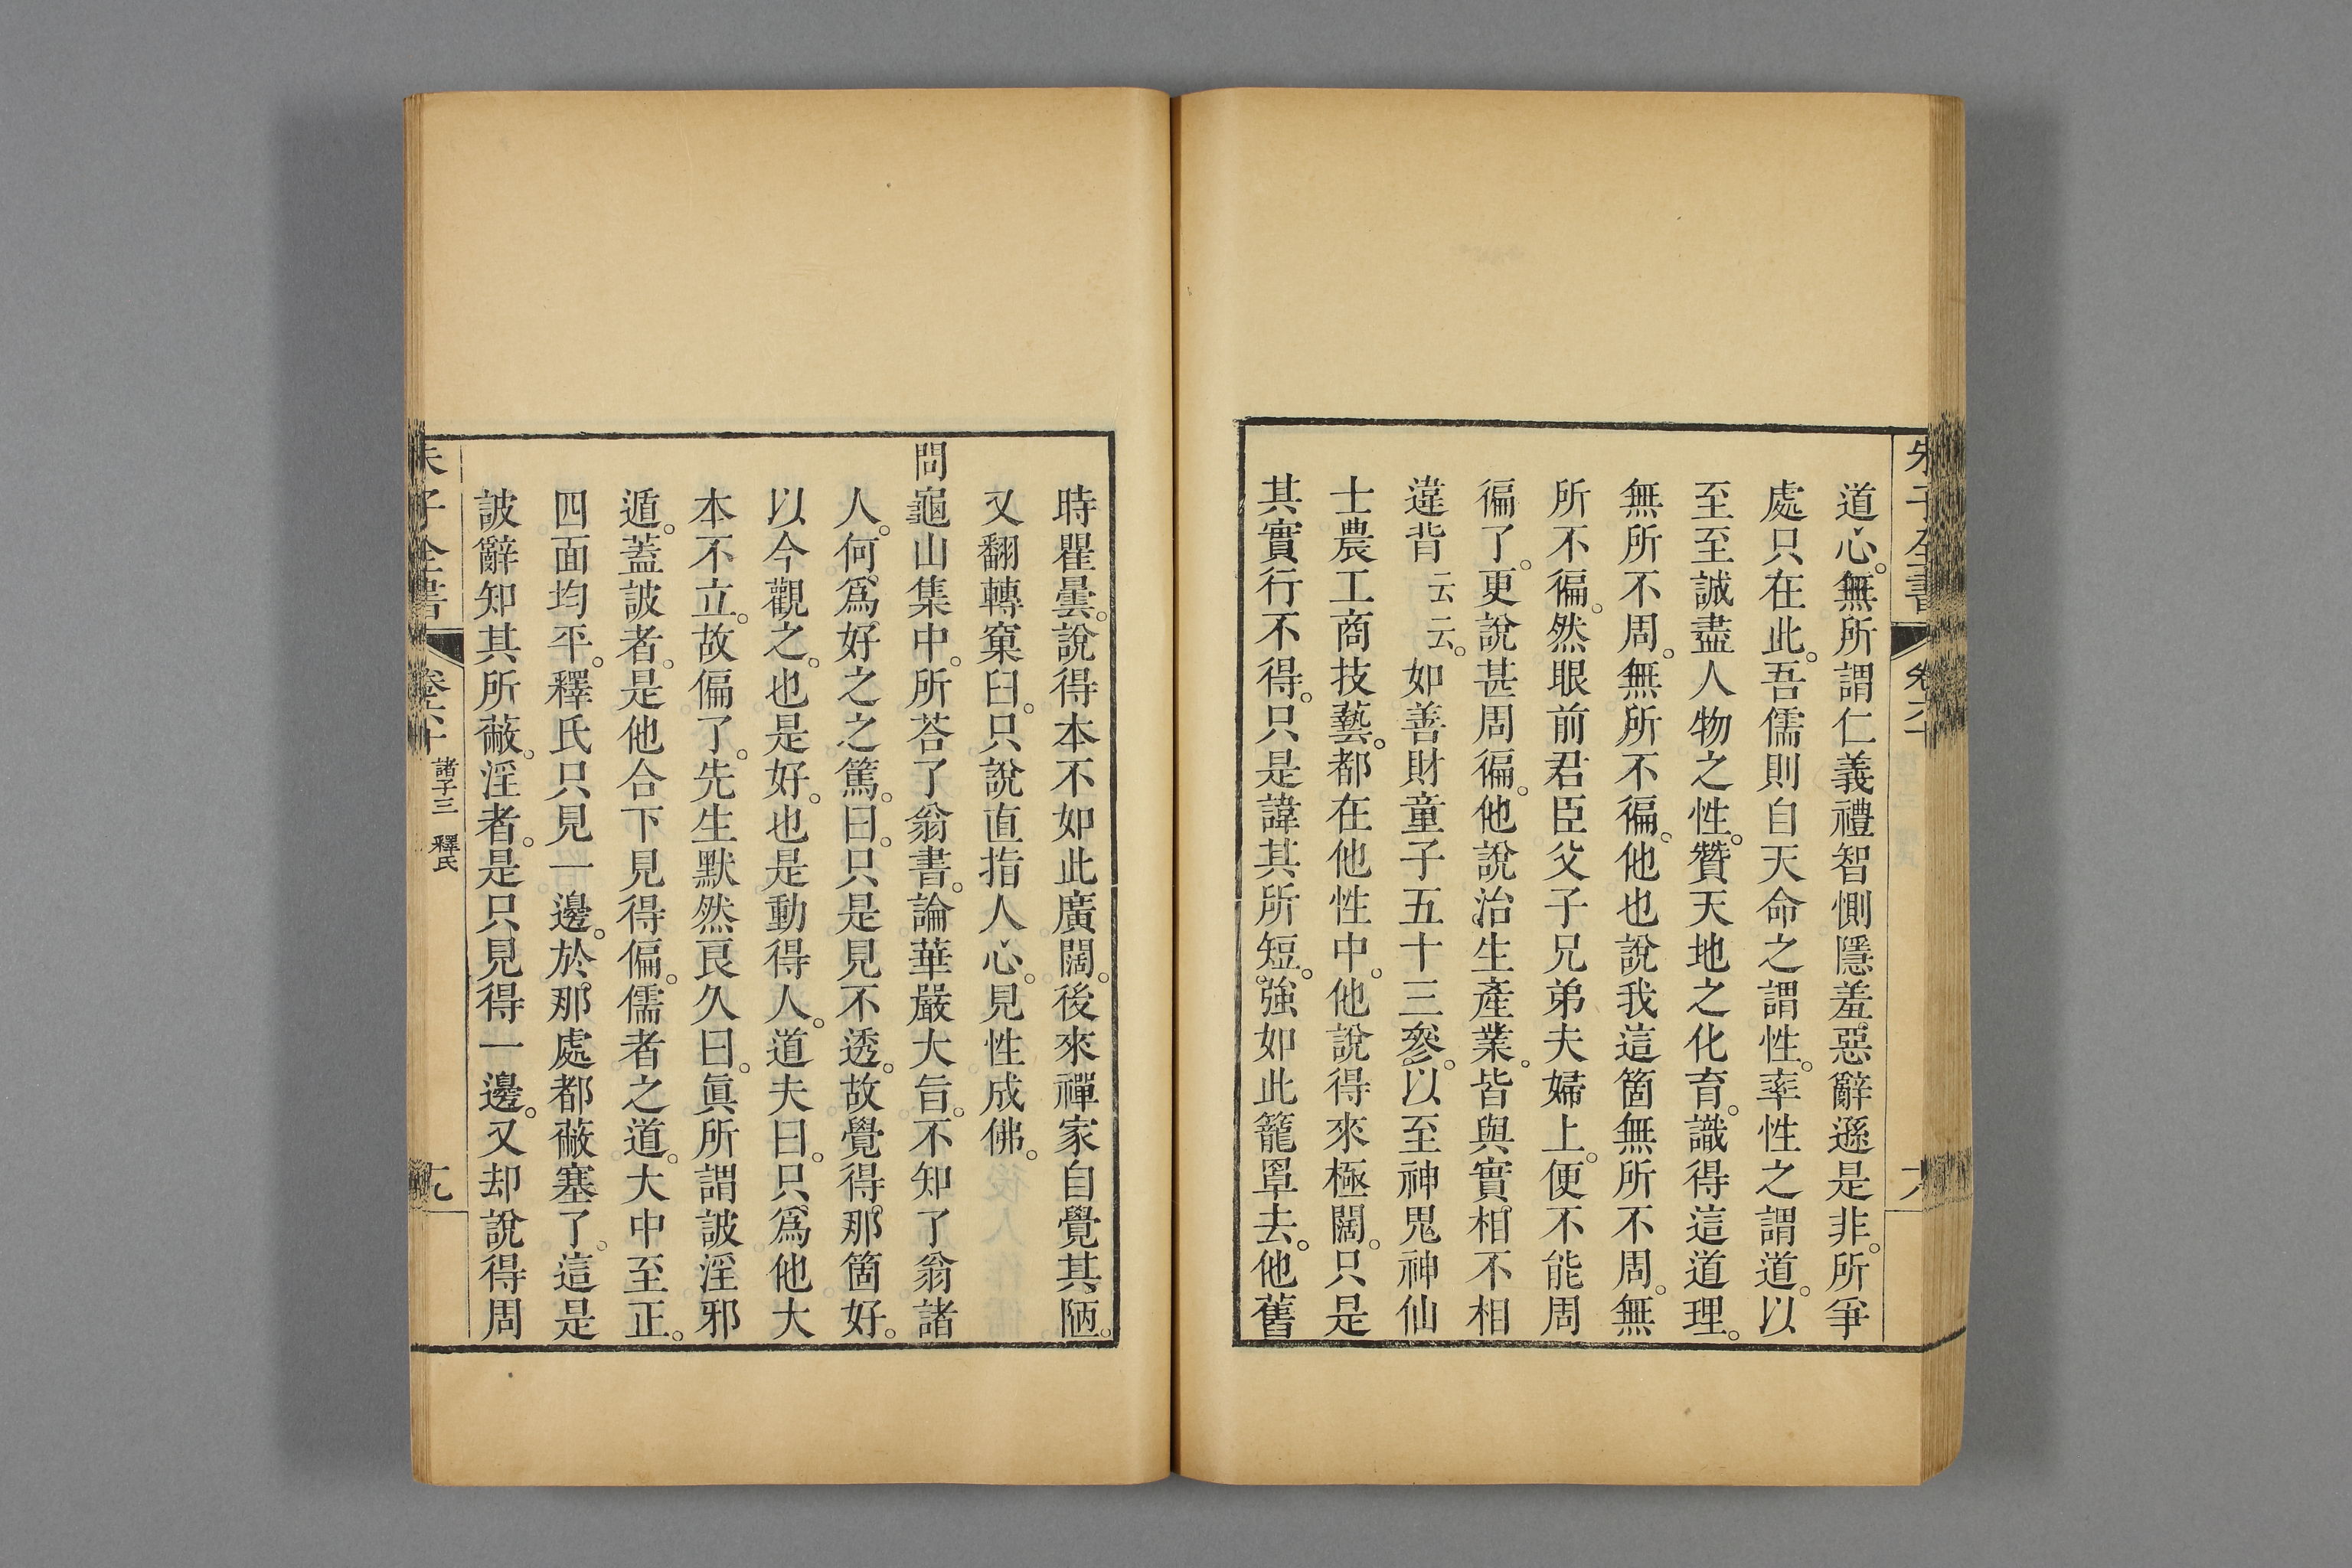 朱子全書 卷六十
道心。無所謂仁義禮智惻隱羞惡辭遜是非。所爭
處只在此。吾儒則自天命之謂性。率性之謂道。以
至至誠盡人物之性。贊天地之化育。識得這道理。
無所不周。無所不徧。他也說我這箇無所不周。無
所不徧。然眼前君臣父子兄弟夫婦上。便不能周
徧了。更說甚周徧。他說治生產業。皆與實相不相
違背云云。如善財童子五十三參。以至神鬼神仙
士農工商技藝。都在他性中。他說得來極闊。只是
其實行不得。只是諱其所短。強如此籠罩去。他舊
時瞿曇。說得本不如此廣闊。後來禪家自覺其陋。
又翻轉窠臼。只說直指人心。見性成佛。
問龜山集中。所荅了翁書。論華嚴大旨。不知了翁諸
人。何爲好之之篤。曰。只是見不透。故覺得那箇好。
以今觀之。也是好。也是動得人。道夫曰。只爲他大
本不立。故偏了。先生默然良久曰。眞所謂詖淫邪
遁。蓋詖者。是他合下見得偏。儒者之道。大中至正。
四面均平。釋氏只見一邊。於那處都蔽塞了。這是
詖辭知其所蔽。淫者。是只見得一邊。又却說得周
朱子全書 卷六十 諸子三 釋氏 十九